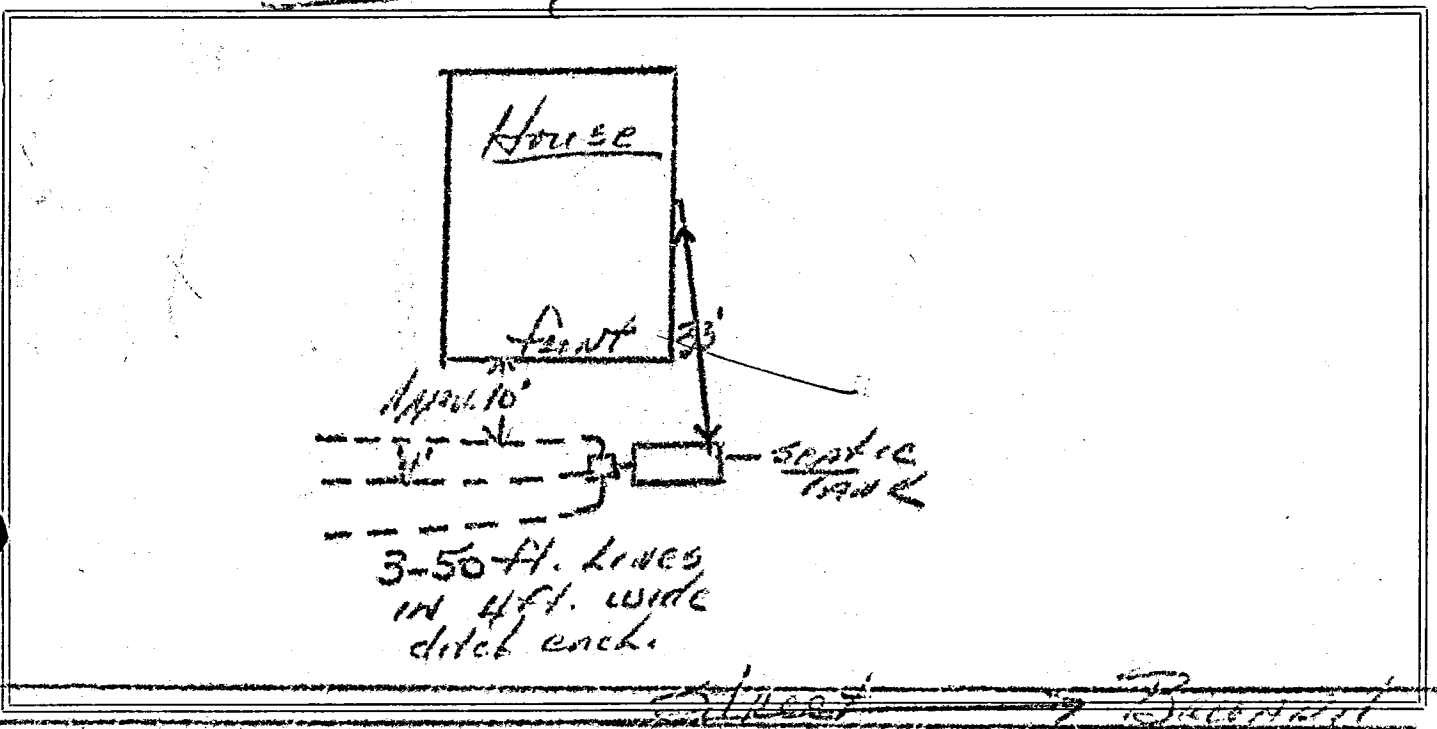 House
front
33'
Appx. 10'
4'
septic
tank
3-50 ft. Lines
in 4ft. wide
ditch each.
Street